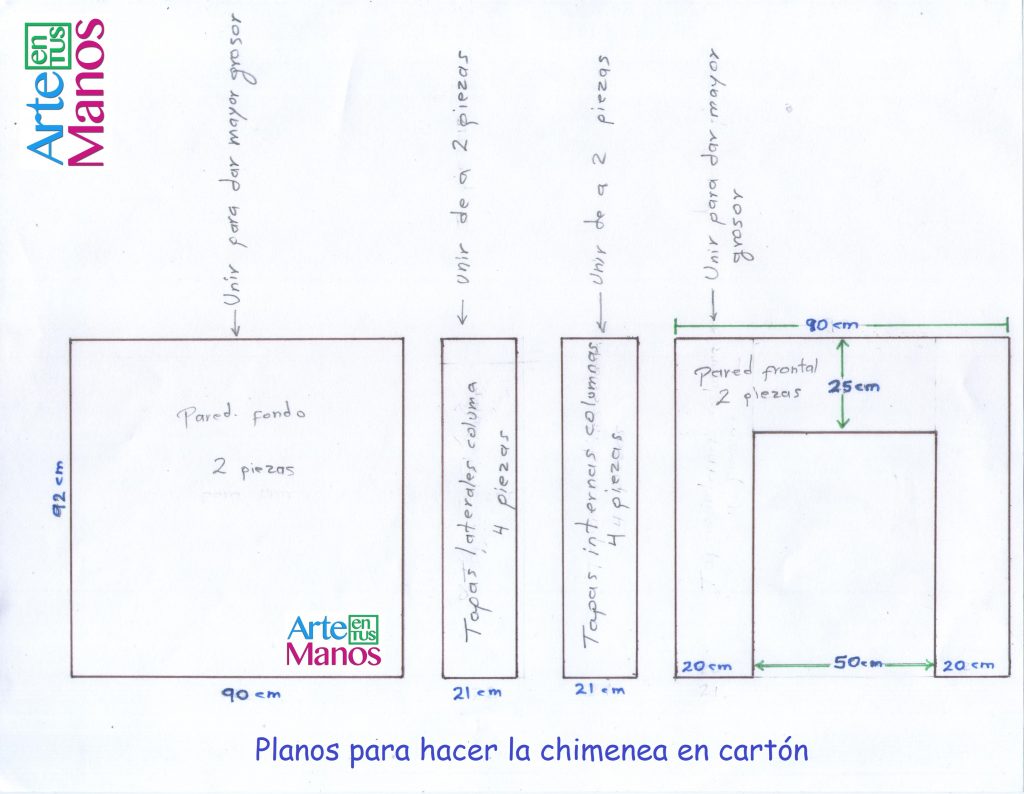 Arte en TUS
Manos
Unir para dar mayor grosor
Unir de a 2 piezas
Unir de a 2 piezas
Unir para dar mayor
grosor
90 cm
Pared fondo
2 piezas
92 cm
90 cm
Arte en TUS
Manos
Tapas laterales columa
4 piezas
21 cm
Tapas internas columnas
4 piezas
21 cm
Pared frontal
2 piezas
25 cm
20 cm
50 cm
20 cm
Planos para hacer la chimenea en cartón